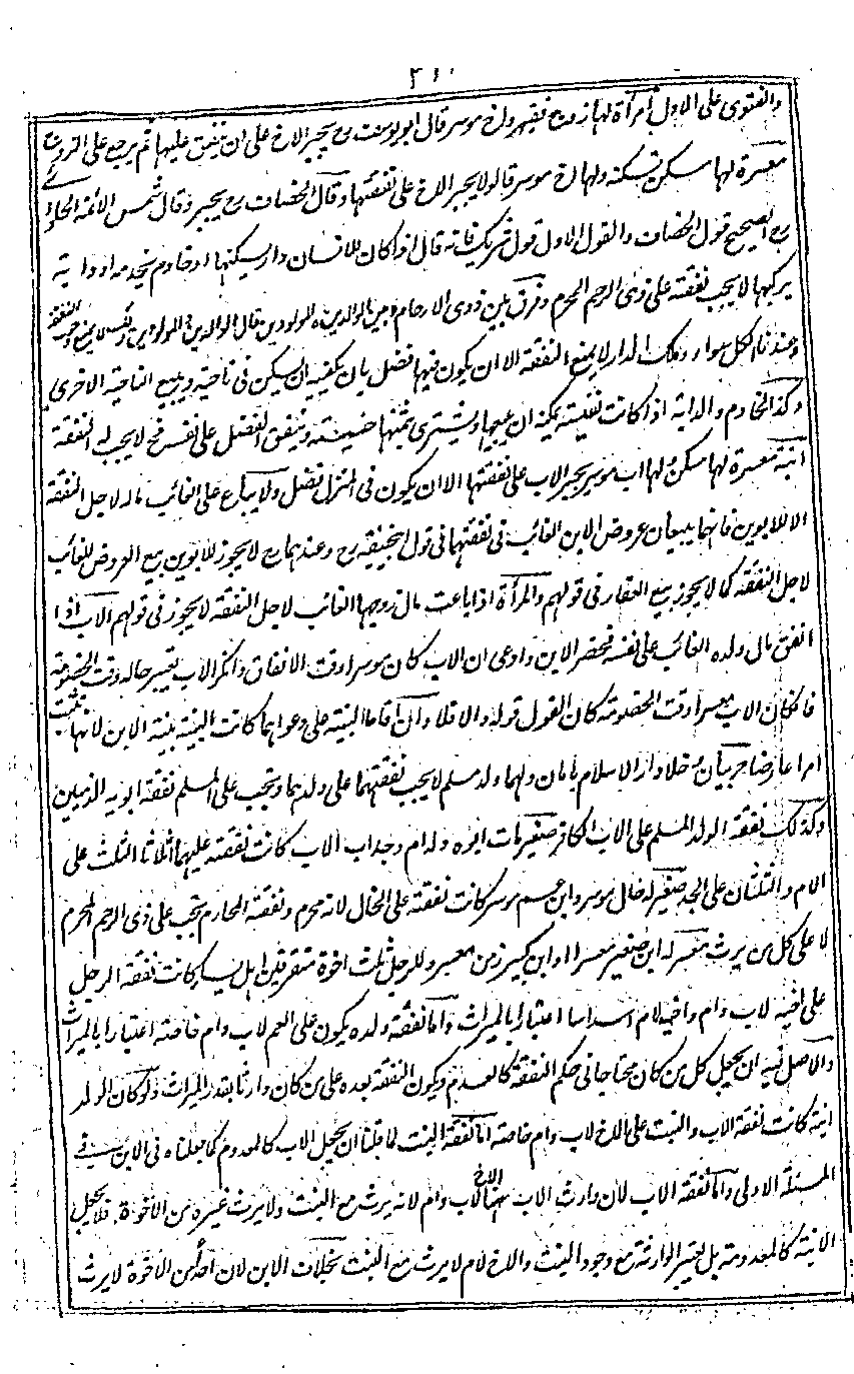 ٢١٠
والفتوى على الاول امرأة لها زوج فقير واخ موسر قال ابو يوسف رح يجبر الاخ على ان ينفق عليها ثم يرجع على الزوج
معسرة لها مسكن تسكنه ولها اخ موسر قالوا لا يجبر الاخ على نفقتها وقال الخصاف رح يجبر وقال شمس الائمة الحلوائي
رح الصحيح قول الخصاف والقول الاول قول شريك فانه قال اذا كان للانسان دار يسكنها او خادم يخدمه او دابة
يركبها لا يجب نفقته على ذى الرحم المحرم وفرق بين ذوى الارحام وبين الوالدين والمولودين فقال الوالدين والمولودين لا يمنع وجوب النفقة
وعندنا الكل سواء وملك الدار لا يمنع النفقة الا ان يكون فيها فضل بان يكفيه ان يسكن فى ناحية ويبيع الناحية الاخرى
وكذا الخادم والدابة اذا كانت نفيسة يمكنه ان يبيعها ويشترى بثمنها خسيسة وينفق الفضل على نفسه فح لا يجب له النفقة
ابنة معسرة لها مسكن ولها اب موسر يجبر الاب على نفقتها الا ان يكون فى المنزل فضل ولا يباع على الغائب ماله لاجل النفقة
الا للابوين فانهما يبيعان عروض الابن الغائب فى نفقتهما فى قول ابيحنيفة رح وعندهما رح لا يجوز للابوين بيع العروض للغائب
لاجل النفقة كما لا يجوز بيع العقار فى قولهم والمرأة اذا باعت مال زوجها الغائب لاجل النفقة لا يجوز فى قولهم الاب اذا
انفق مال ولده الغائب على نفسه فحضر الابن وادعى ان الاب كان موسرا وقت الانفاق وانكر الاب يعتبر حاله وقت الخصومة
فان كان الاب معسرا وقت الخصومة كان القول قوله والا فلا وان اقاما البينة على دعواهما كانت البينة بينة الابن لانها تثبت
امرا عارضا حربيان دخلا دار الاسلام بامان ولهما ولد مسلم لا يجب نفقتهما على ولدهما وتجب على المسلم نفقة ابويه الذميين
وكذلك نفقة الولد المسلم على الاب الكافر صغير مات ابوه وله ام وجد اب الاب كانت نفقته عليهما اثلاثا الثلث على
الام والثلثان على الجد صغير له خال موسر وابن عم موسر كانت نفقته على الخال لانه محرم ونفقة المحارم يجب على ذى الرحم المحرم
لا على كل من يرث معسر له ابن صغير معسر او ابن كبير زمن معسر وللرجل ثلث اخوة متفرقين اهل يسار كانت نفقة الرجل
على اخيه لاب وام واخيه لام اسداسا اعتبارا بالميراث واما نفقة ولده يكون على العم لاب وام خاصة اعتبارا بالميراث
والاصل فيه ان يجعل كل من كان محتاجا فى حكم النفقة كالمعدوم ويكون النفقة بعده على من كان وارثا بقدر الميراث ولو كان الولد
ابنة كانت نفقة الاب والبنت على الاخ لاب وام خاصة اما نفقة البنت لما قلنا ان يجعل الاب كالمعدوم كما جعلناه فى الابن فى
المسئلة الاولى واما نفقة الاب لان وارث الاب هنا الاخ لاب وام لانه يرث مع البنت ولا يرث غيره من الاخوة فلا يجعل
الابنة كالمعدومة بل يعتبر الوارثة مع وجود البنت والاخ لام لا يرث مع البنت بخلاف الابن لان احدا من الاخوة لا يرث